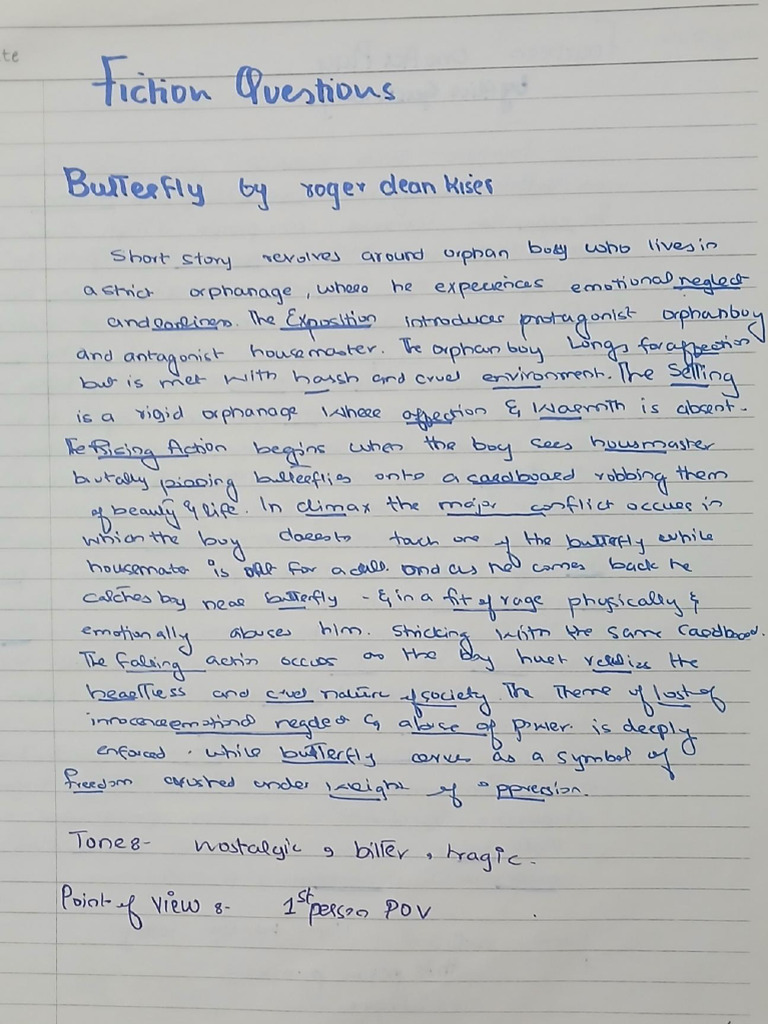 te
Fiction Questions
Butterfly by roger dean Kiser
Short story revolves around orphan boy who lives in
a strict orphanage, where he experiences emotional neglect
and lonliness. The Exposition introduces protagonist orphan boy
and antagonist housemaster. The orphan boy Longs for affection
but is met with harsh and cruel environment. The Setting
is a rigid orphanage where affection & warmth is absent.
The Rising Action begins when the boy sees housmaster
brutally pinning butterflies onto a cardboard robbing them
of beauty & life. In climax the major conflict occurs in
which the boy dares to touch one of the butterfly while
housemater is off for a call. and as he comes back he
catches boy near butterfly - & in a fit of rage physically &
emotionally abuses him. Stricking with the same Cardboard.
The falling action occurs as the boy hurt realize the
heartless and cruel nature of society. The Theme of lost of
innocence emotional neglect & abuse of power. is deeply
enforced. while butterfly serves as a symbol of
freedom crushed under weight of oppression.
Tone :- nostalgic, bitter, tragic.
Point of view :- 1st person POV